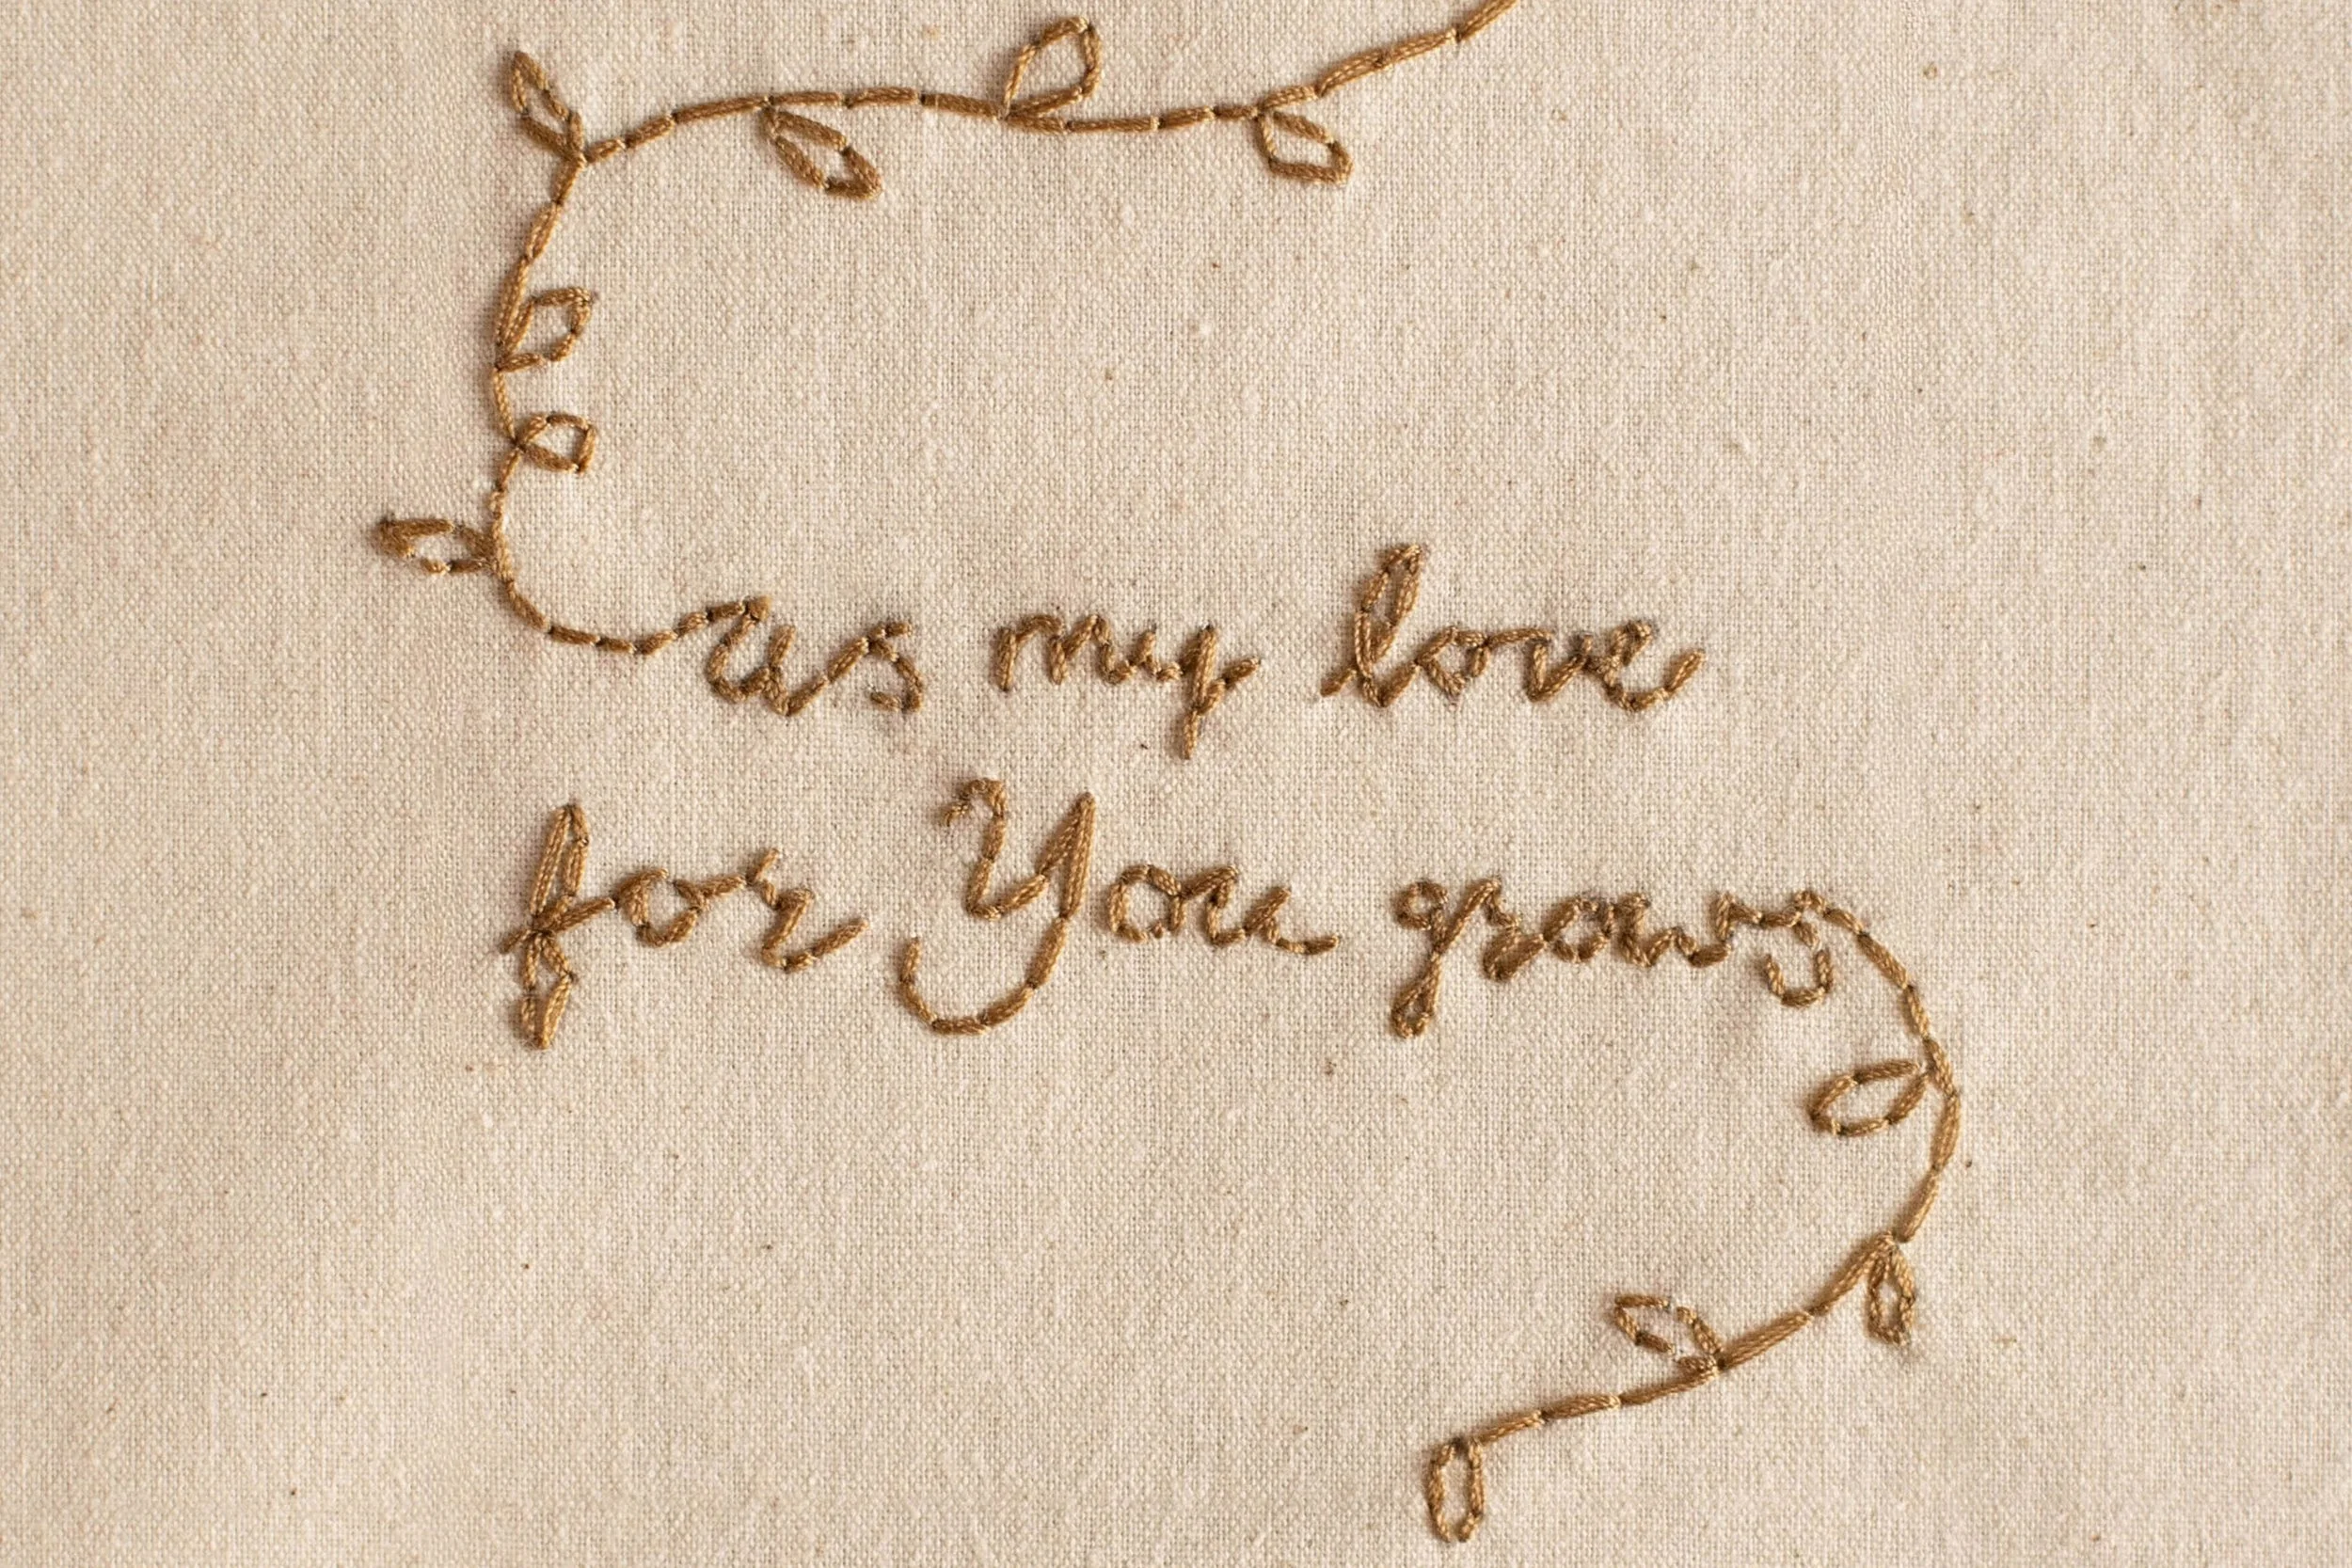 as my love
for You grows